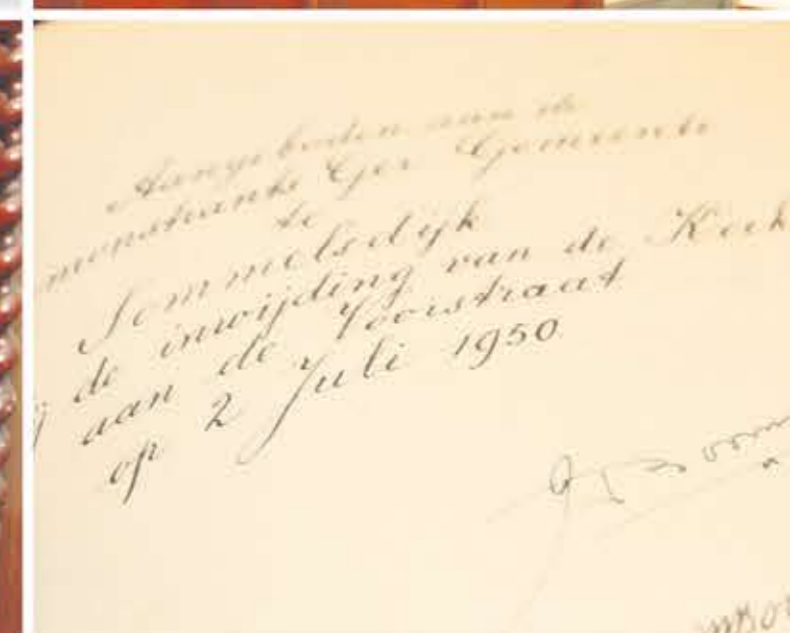 Aangeboden aan de
monstrants Ger Gemeente
te
Sommelsdijk
j de inwijding van de Kerk
aan de Voorstraat
op 2 Juli 1950